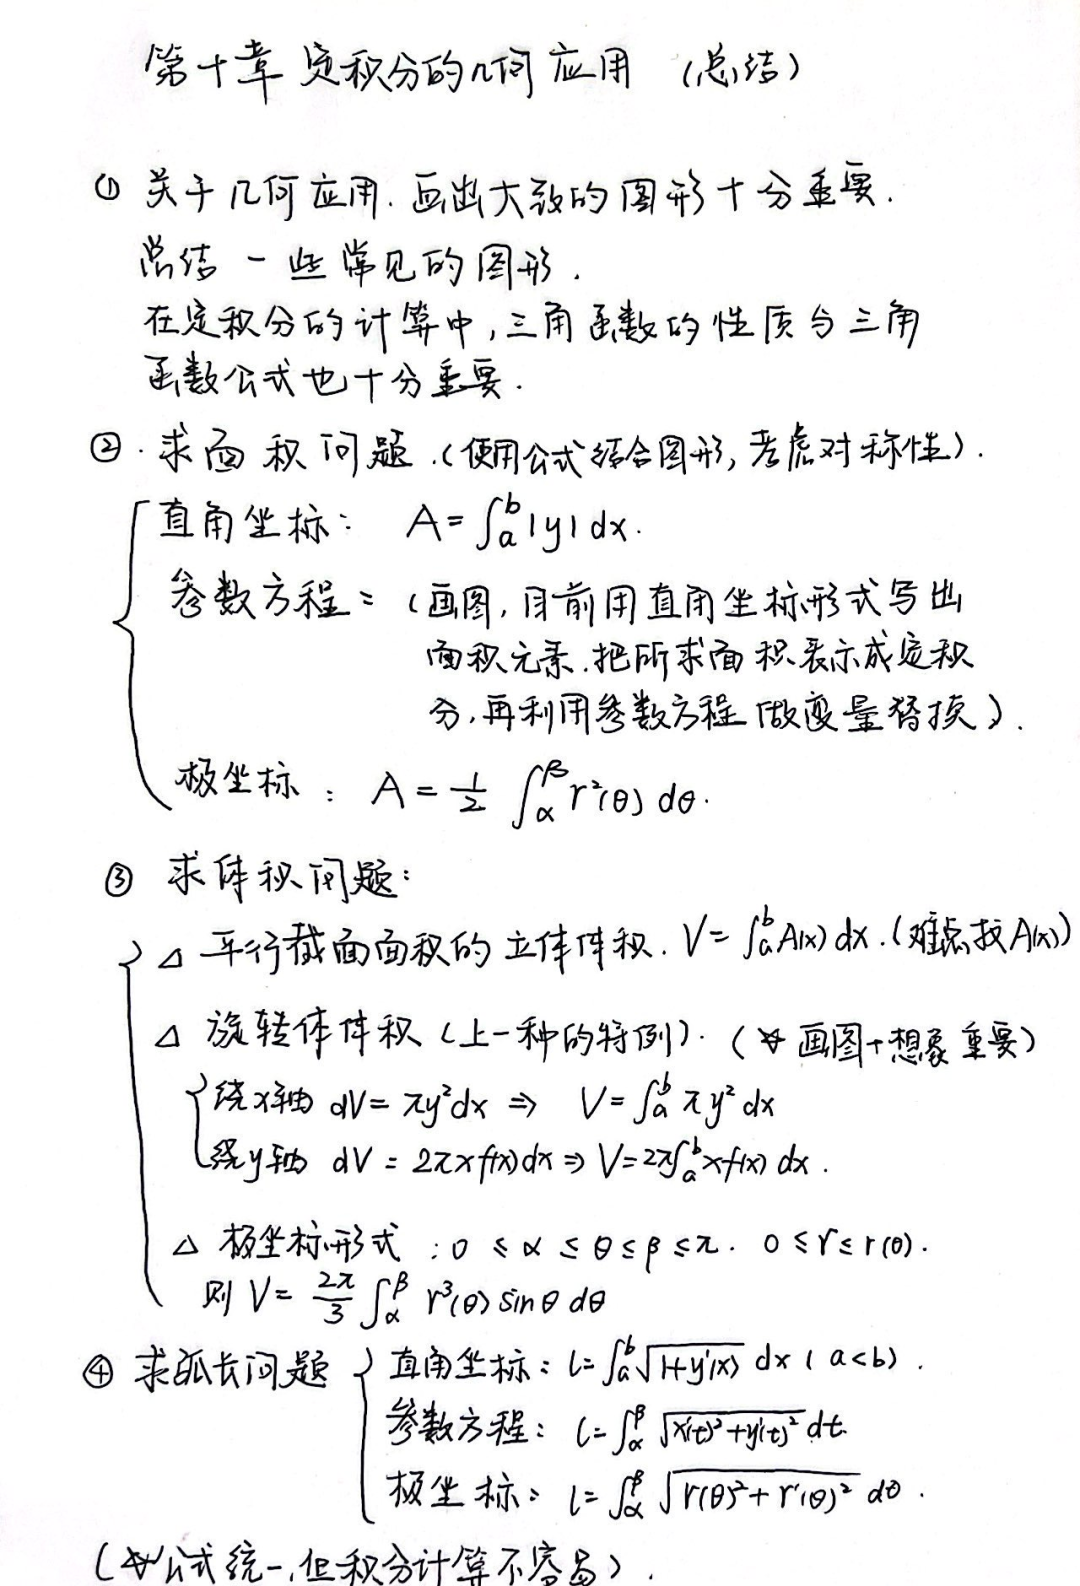 第十章 定积分的几何应用 (总结)
① 关于几何应用. 画出大致的图形十分重要.
总结一些常见的图形.
在定积分的计算中,三角函数的性质与三角
函数公式也十分重要.
②. 求面积问题.(使用公式结合图形,考虑对称性).
直角坐标: A=∫_a^b |y| dx.
参数方程: (画图,目前用直角坐标形式写出
面积元素.把所求面积表示成定积
分,再利用参数方程做变量替换).
极坐标: A = 1/2 ∫_α^β r²(θ) dθ.
③ 求体积问题:
△ 平行截面面积的立体体积. V= ∫_a^b A(x) dx.(难点找A(x))
△ 旋转体体积 (上一种的特例). (☆ 画图+想象重要)
绕x轴 dV= πy²dx ⇒ V=∫_a^b πy² dx
绕y轴 dV = 2πxf(x)dx ⇒ V=2π∫_a^b xf(x) dx.
△ 极坐标形式 : 0 ≤ α ≤ θ ≤ β ≤ π. 0 ≤ r ≤ r(θ).
则 V= 2π/3 ∫_α^β r³(θ) sinθ dθ
④ 求弧长问题 直角坐标: l=∫_a^b √(1+y'(x)) dx (a<b).
参数方程: l=∫_α^β √(x'(t)²+y'(t)²) dt.
极坐标: l=∫_α^β √(r(θ)²+r'(θ)²) dθ.
(☆公式统一,但积分计算不容易).